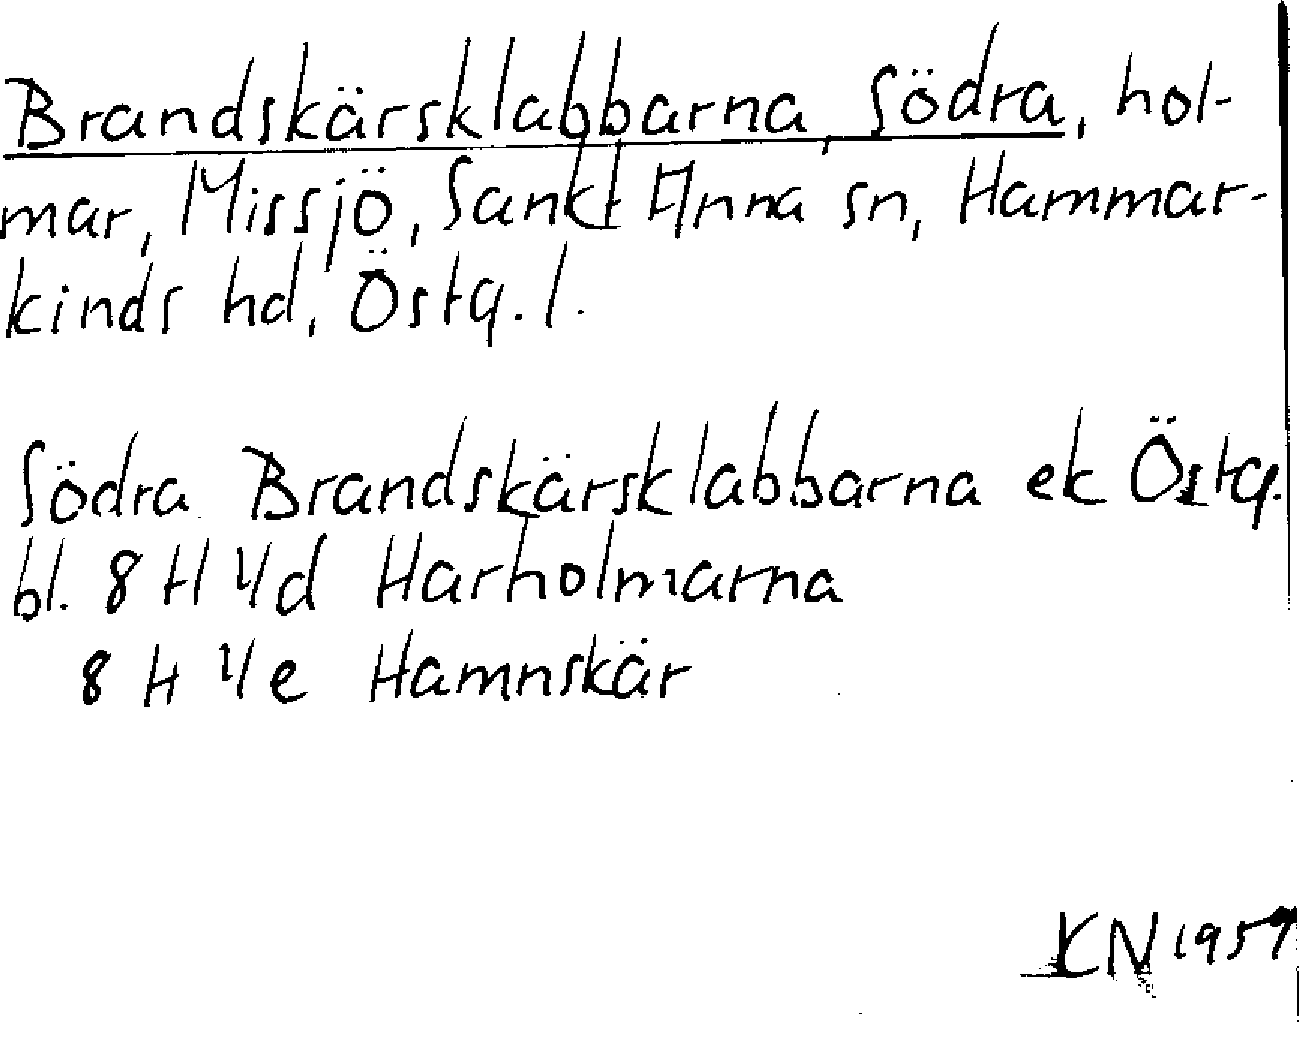 Brandskärsklabbarna, Södra, hol-
mar, Missjö, Sankt Anna sn, Hammar-
kinds hd, Östg. l.
Södra Brandskärsklabbarna ek Östg.
bl. 8 H 1/d Harholmarna
8 H 1/e Hamnskär
KN 1959